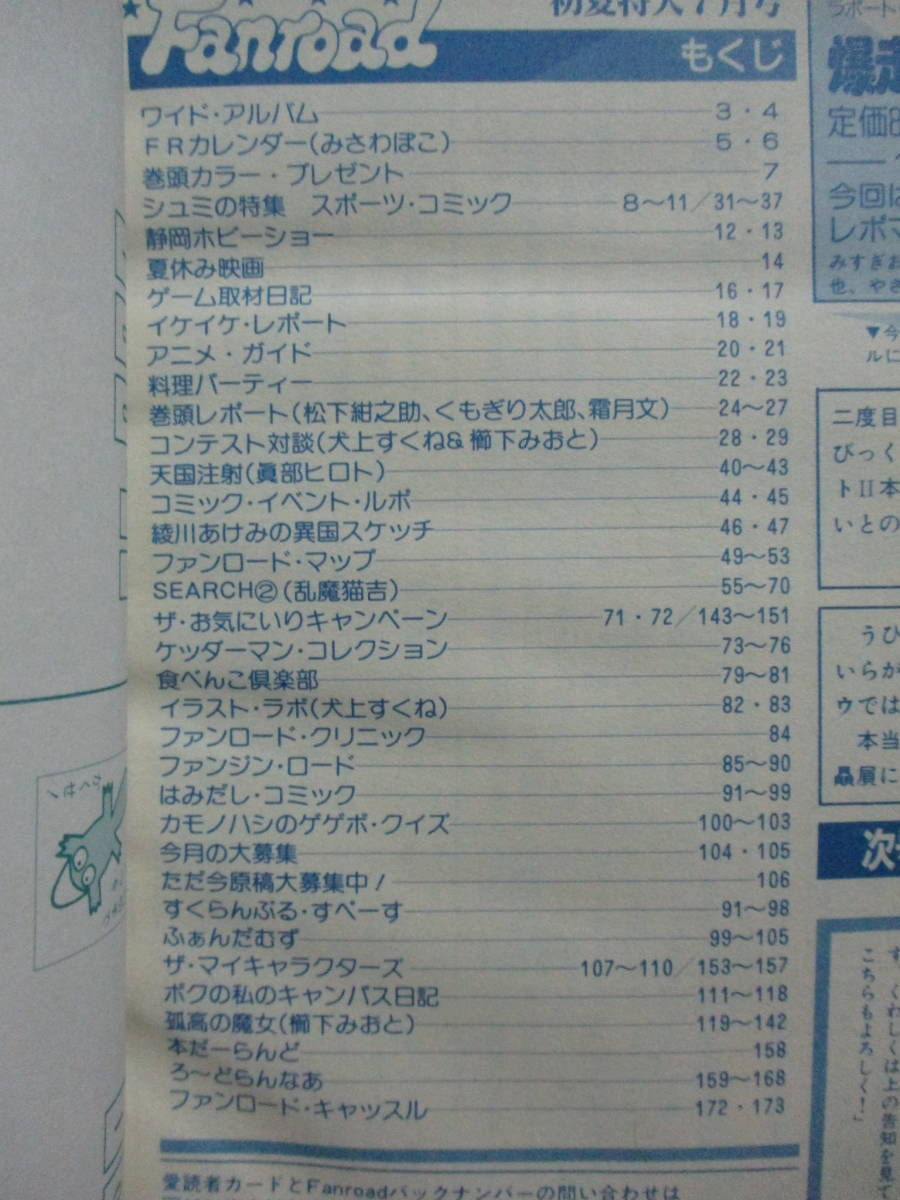 Fanroad
初夏特大7月号
もくじ
ワイド・アルバム 3・4
FRカレンダー(みさわぽこ) 5・6
巻頭カラー・プレゼント 7
シュミの特集 スポーツ・コミック 8〜11/31〜37
静岡ホビーショー 12・13
夏休み映画 14
ゲーム取材日記 16・17
イケイケ・レポート 18・19
アニメ・ガイド 20・21
料理パーティー 22・23
巻頭レポート(松下紺之助、くもぎり太郎、霜月文) 24〜27
コンテスト対談(犬上すくね&櫛下みおと) 28・29
天国注射(眞部ヒロト) 40〜43
コミック・イベント・ルポ 44・45
綾川あけみの異国スケッチ 46・47
ファンロード・マップ 49〜53
SEARCH②(乱魔猫吉) 55〜70
ザ・お気にいりキャンペーン 71・72/143〜151
ケッダーマン・コレクション 73〜76
食べんこ倶楽部 79〜81
イラスト・ラボ(犬上すくね) 82・83
ファンロード・クリニック 84
ファンジン・ロード 85〜90
はみだし・コミック 91〜99
カモノハシのゲゲボ・クイズ 100〜103
今月の大募集 104・105
ただ今原稿大募集中! 106
すくらんぶる・すぺーす 91〜98
ふぁんだむず 99〜105
ザ・マイキャラクターズ 107〜110/153〜157
ボクの私のキャンパス日記 111〜118
孤高の魔女(櫛下みおと) 119〜142
本だーらんど 158
ろ〜どらんなあ 159〜168
ファンロード・キャッスル 172・173
愛読者カードとFanroadバックナンバーの問い合わせは
ラポート
定価8
今回は
レポマ
みすぎお
也、やき
▼今
ルに
二度目
びっく
トII本
いとの
うひ
いらが
ウでは
本当
贔屓に
次
くわしくは上の告知を見て
こちらもよろしく!」